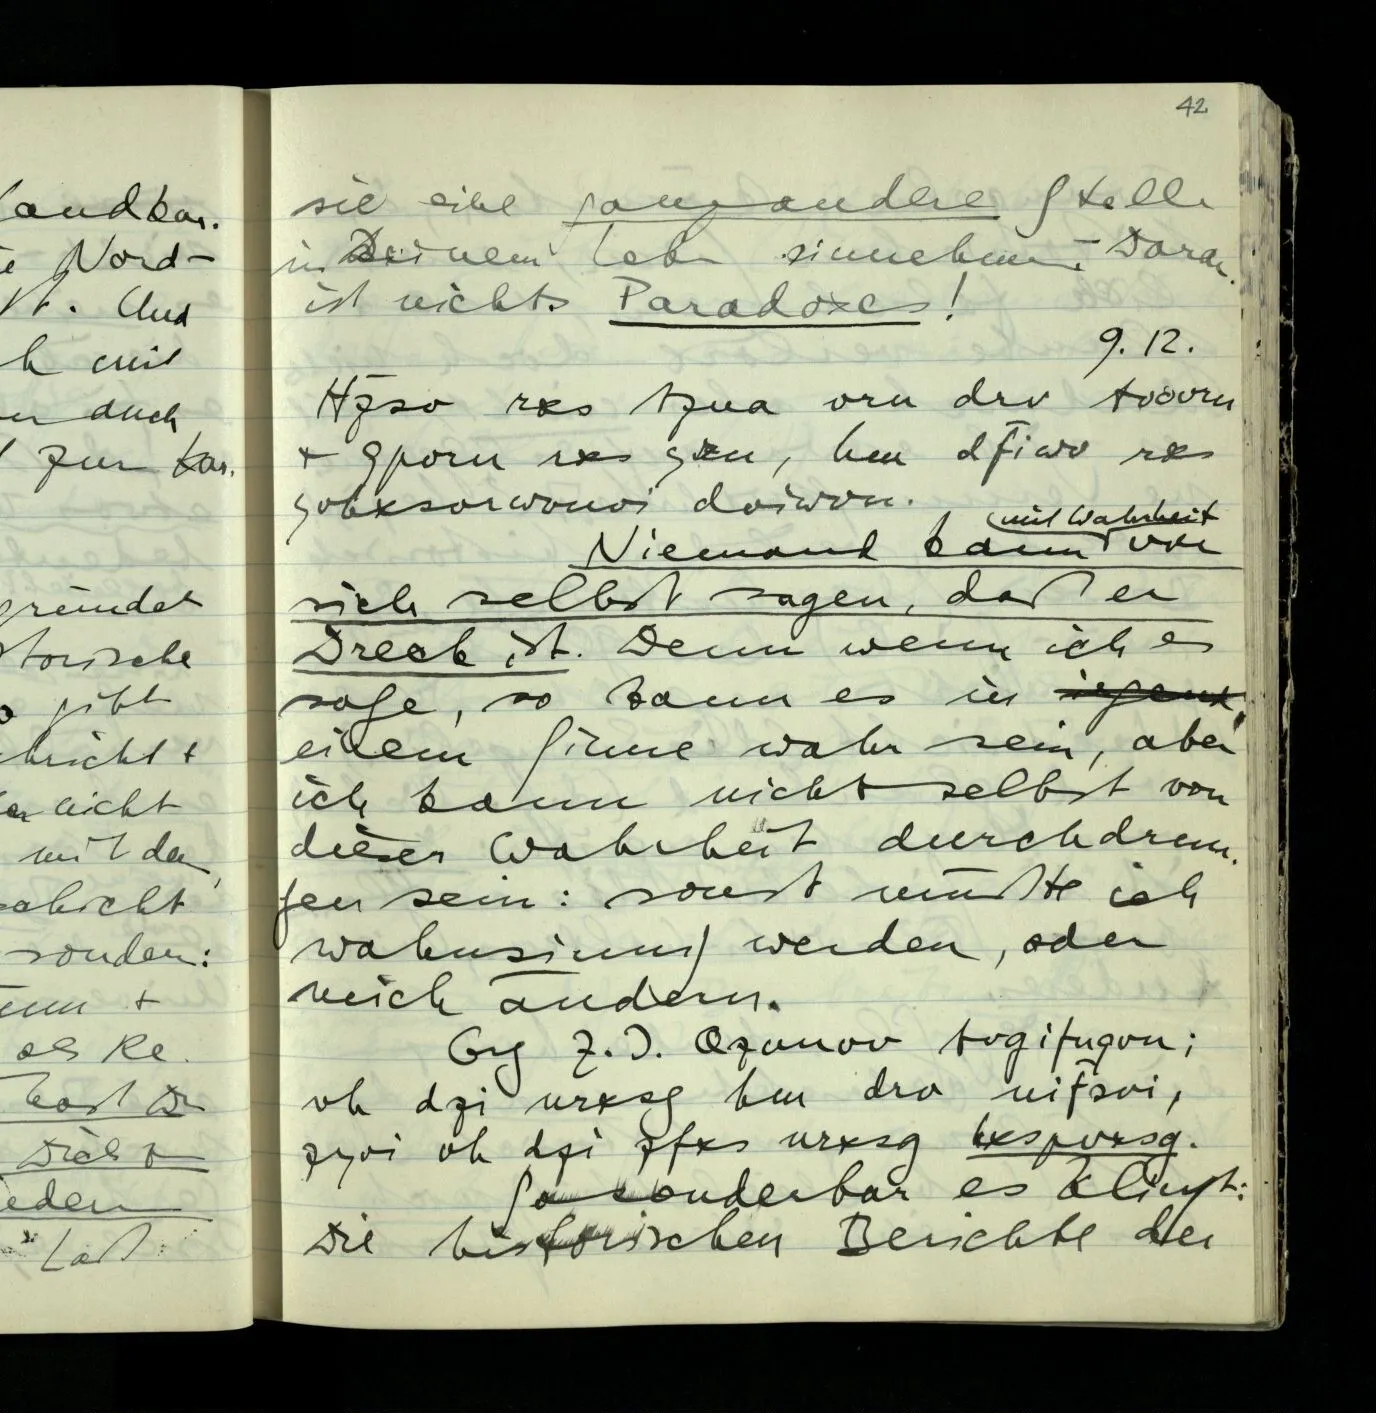 landkar.
Nord-
Und
h mit
duch
zur Kar.
gründet
torische
gibt
chricht +
nicht
mit der
sondern:
+
als Re.
hast Du
Dich
jeden
Laß
42
sie eine ganz andere Stelle
in Deinem Leben einnehmen. – Daran
ist nichts Paradoxes!
9. 12.
Hpso rxs tpua oru drv toooru
+ gporu rxs gxu, hmu dfiwo rxs
gohxsorwonoi doiworu.
(mit Wahrheit
Niemand kann von
sich selbst sagen, daß er
Dreck ist. Denn wenn ich es
sage, so kann es in irgend
einem Sinne wahr sein, aber
ich kann nicht selbst von
dieser Wahrheit durchdrun-
gen sein: sonst müßte ich
wahnsinnig werden, oder
mich ändern.
Z. J. Ozonov togifugon;
oh dzi urxsg hmu dro
zyoi oh dzi zfxs urxsg hxsporxsg.
So sonderbar es klingt:
Die historischen Berichte der